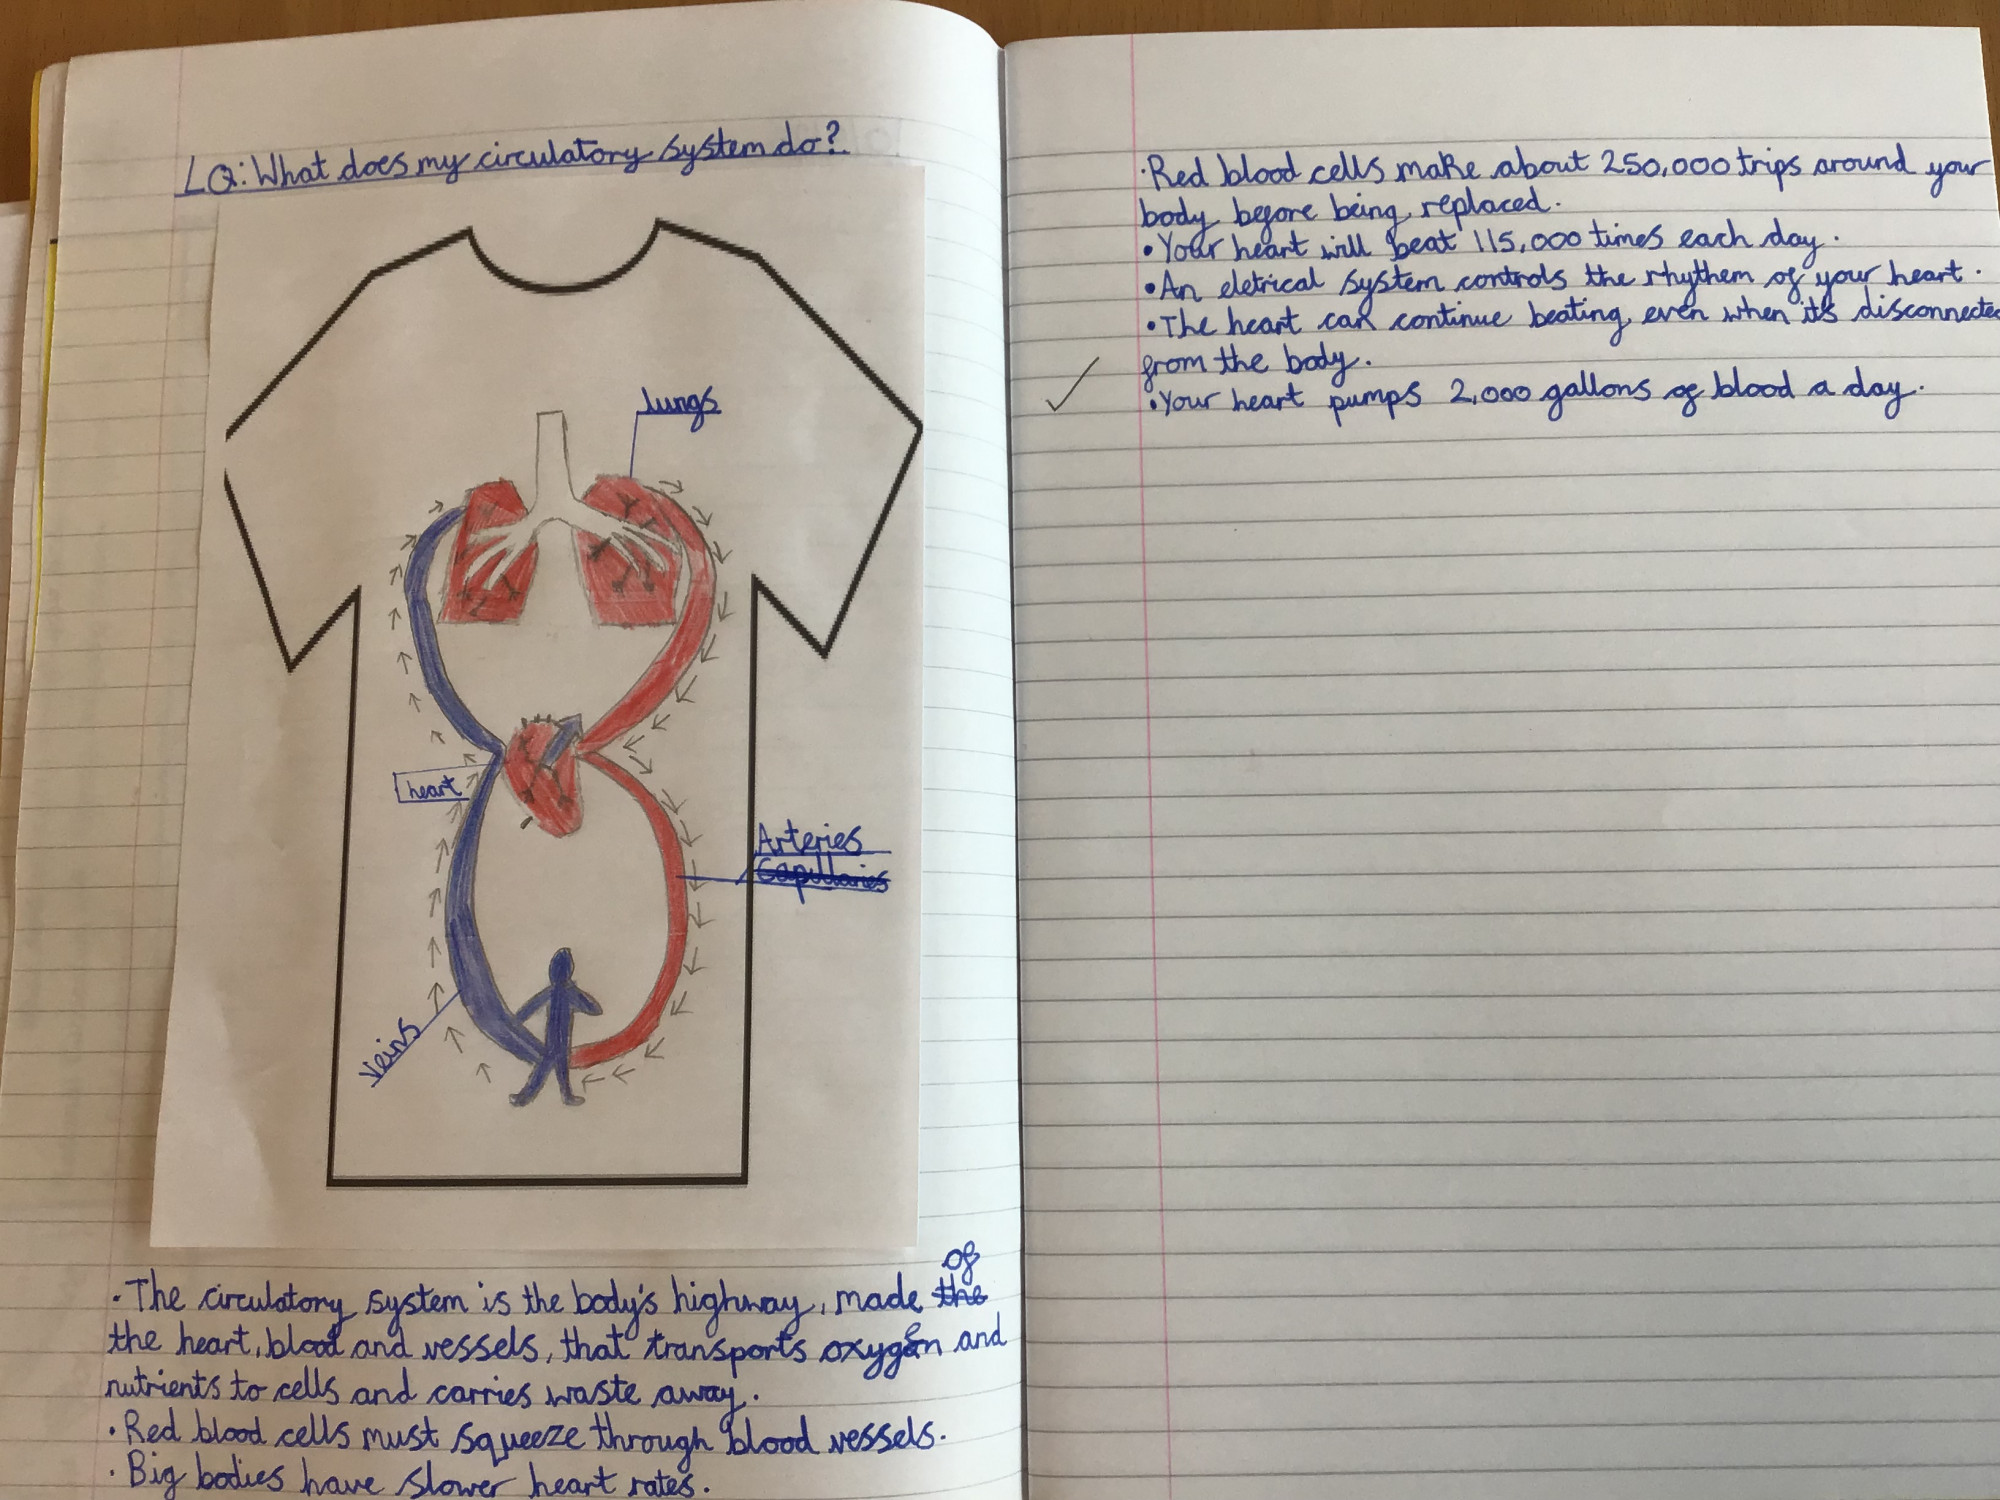 LQ: What does my circulatory system do?
lungs
heart
Arteries
Capillaries
Veins
of
• The circulatory system is the body's highway, made the
the heart, blood and vessels, that transports oxygen and
nutrients to cells and carries waste away.
• Red blood cells must squeeze through blood vessels.
• Big bodies have slower heart rates.
• Red blood cells make about 250,000 trips around your
body before being replaced.
• Your heart will beat 115,000 times each day.
• An eletrical system controls the rhythem of your heart.
• The heart can continue beating even when it's disconnected
from the body.
• Your heart pumps 2,000 gallons of blood a day.